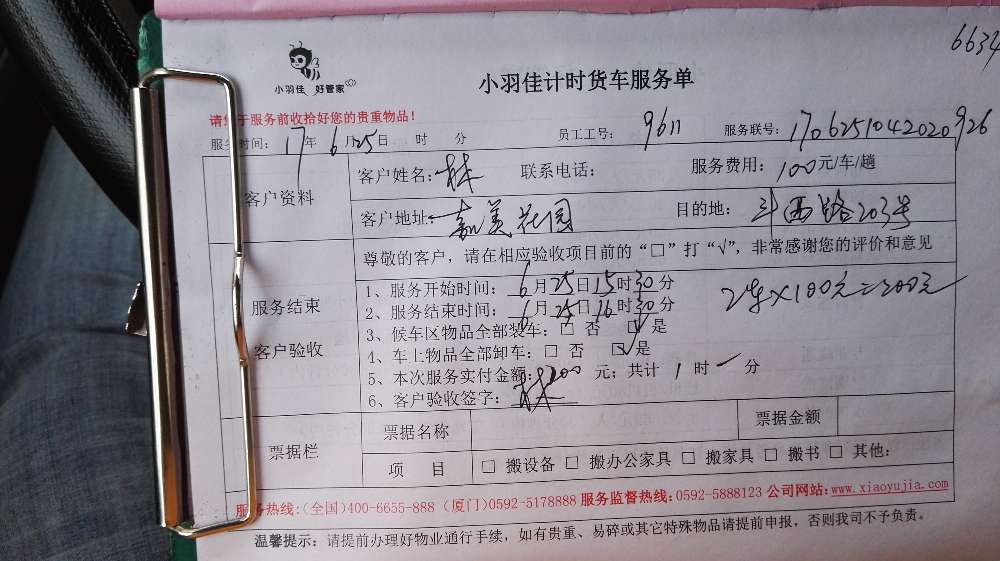 6634
小羽佳 好管家
小羽佳计时货车服务单
请您于服务前收拾好您的贵重物品!
服务时间: 17年 6月25日 时 分 员工工号: 9611 服务联号: 1706251042020926
客户资料
客户姓名: 林 联系电话: 服务费用: 100元/车/趟
客户地址: 嘉美花园 目的地: 斗西路203号
服务结束
客户验收
尊敬的客户,请在相应验收项目前的“□”打“√”,非常感谢您的评价和意见
1、服务开始时间: 6月25日15时30分
2、服务结束时间: 6月25日16时30分
2车×100元=200元
3、候车区物品全部装车: □ 否 ☑ 是
4、车上物品全部卸车: □ 否 ☑ 是
5、本次服务实付金额: 200 元; 共计 1 时 一 分
6、客户验收签字: 林
票据栏
票据名称 票据金额
项 目 □ 搬设备 □ 搬办公家具 □ 搬家具 □ 搬书 □ 其他:
服务热线:(全国)400-6655-888 (厦门)0592-5178888 服务监督热线:0592-5888123 公司网站:www.xiaoyujia.com
温馨提示: 请提前办理好物业通行手续,如有贵重、易碎或其它特殊物品请提前申报,否则我司不予负责。